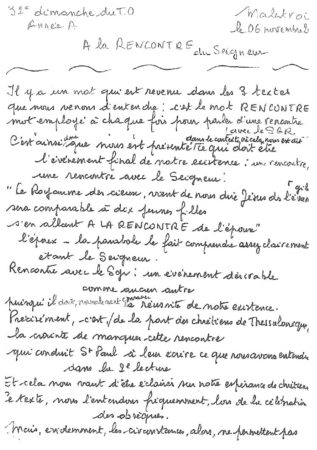 32e dimanche du T.O
Malestroi
Année A
le 06 novembre
A la RENCONTRE du Seigneur
Il y a un mot qui est revenu dans les 3 textes
que nous venons d'entendre : c'est le mot RENCONTRE
mot employé à chaque fois pour parler d'une rencontre
avec le SGR.
dans le contexte où cela nous est dit
C'est ainsi que nous est présenté ce qui doit être
l'événement final de notre existence : une rencontre,
une rencontre avec le Seigneur :
"Le Royaume des cieux, vient de nous dire Jésus ds l'évan
sera comparable à dix jeunes filles
s'en allant A LA RENCONTRE de l'époux"
l'époux - la parabole le fait comprendre assez clairement
étant le Seigneur.
Rencontre avec le Sgr : un événement désirable
comme aucun autre
puisqu'il doit, normalement la réussite de notre existence.
Précisément, c'est, de la part des chrétiens de Thessalonique,
la crainte de manquer cette rencontre
qui conduit St Paul à leur écrire ce que nous avons entendu
dans la 2e lecture
Et cela nous vaut d'être éclairés sur notre espérance de chrétiens
e texte, nous l'entendons fréquemment, lors de la célébration
des obsèques.
Mais, évidemment, les circonstances, alors, ne permettent pas